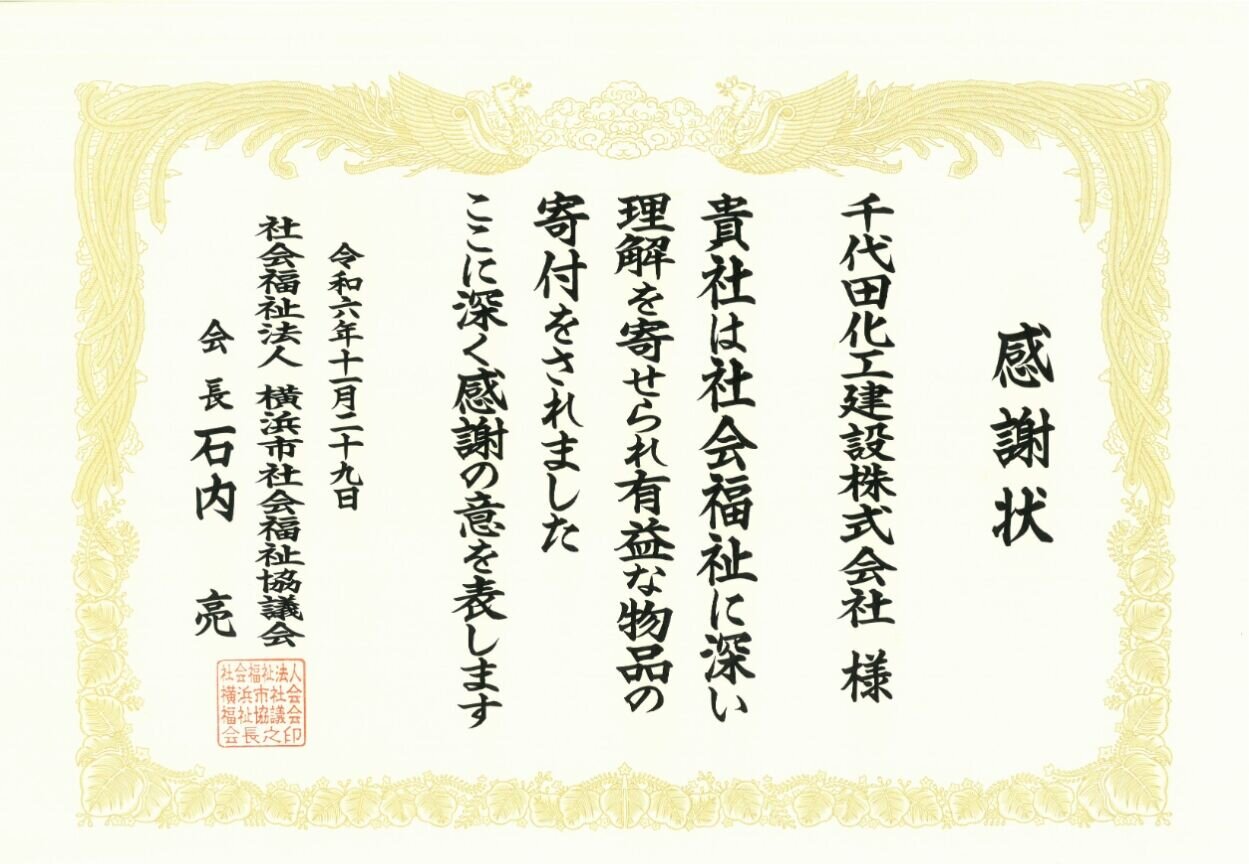 感謝状
千代田化工建設株式会社 様
貴社は社会福祉に深い
理解を寄せられ有益な物品の
寄付をされました
ここに深く感謝の意を表します
令和六年十一月二十九日
社会福祉法人 横浜市社会福祉協議会
会長 石内 亮
社会福祉法人
横浜市社会
福祉協議会
会長之印